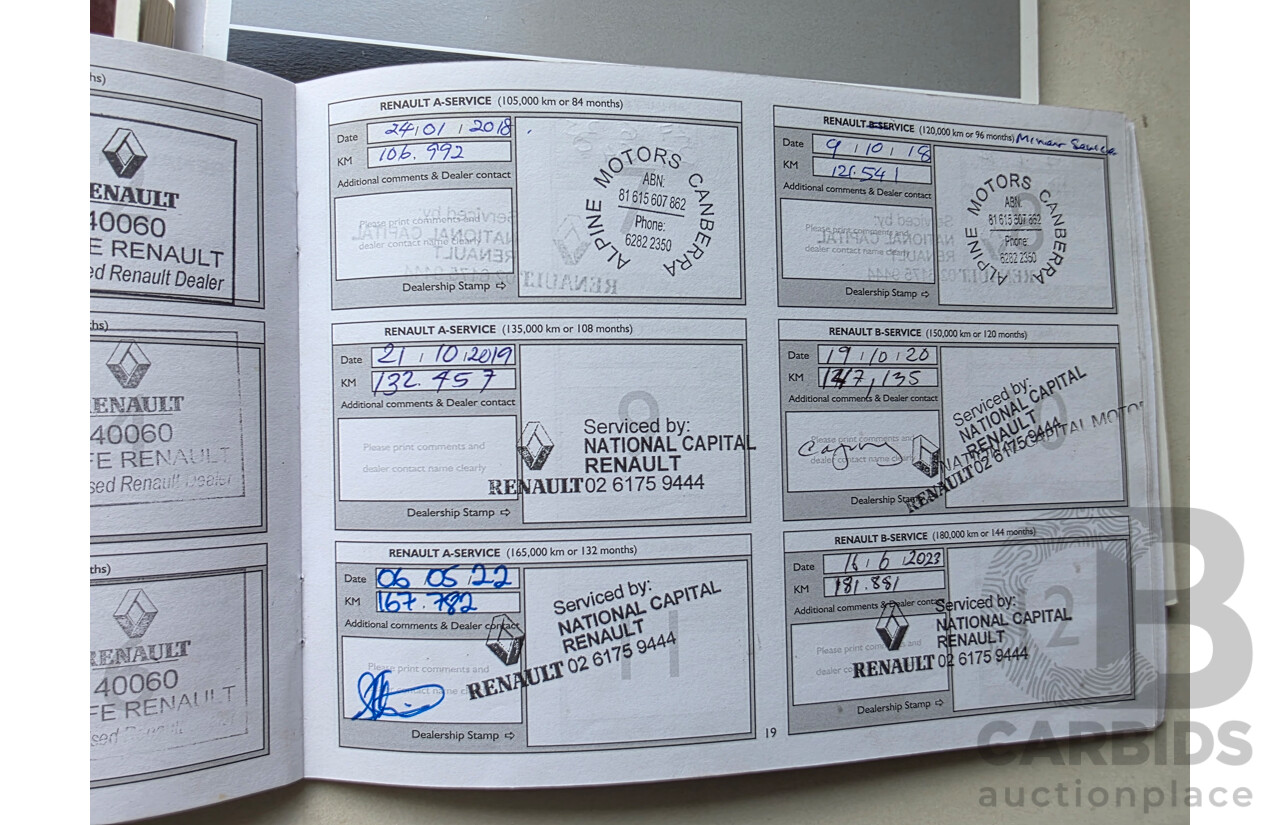 hs)
RENAULT
40060
FE RENAULT
sed Renault Dealer
ths)
RENAULT
40060
FE RENAULT
sed Renault Dealer
ths)
RENAULT
40060
FE RENAULT
RENAULT A-SERVICE (105,000 km or 84 months)
Date 24/01/2018
KM 106.992
Additional comments & Dealer contact
Please print comments and
dealer contact name clearly
Dealership Stamp ⇨
ALPINE MOTORS CANBERRA
ABN:
81 615 607 862
Phone:
6282 2350
RENAULT B-SERVICE (120,000 km or 96 months) Minor Service
Date 9/10/18
KM 121.541
Additional comments & Dealer contact
Please print comments and
dealer contact name clearly
Dealership Stamp ⇨
ALPINE MOTORS CANBERRA
ABN:
81 615 607 862
Phone:
6282 2350
RENAULT A-SERVICE (135,000 km or 108 months)
Date 21/10/2019
KM 132.457
Additional comments & Dealer contact
Please print comments and
dealer contact name clearly
Dealership Stamp ⇨
9
Serviced by:
NATIONAL CAPITAL
RENAULT
RENAULT 02 6175 9444
RENAULT B-SERVICE (150,000 km or 120 months)
Date 19/10/20
KM 147,135
Additional comments & Dealer contact
Please print comments and
dealer contact name clearly
Dealership Stamp
Serviced by:
NATIONAL CAPITAL
RENAULT
RENAULT 02 6175 9444
NATIONAL CAPITAL MOTOR
RENAULT A-SERVICE (165,000 km or 132 months)
Date 06 05 22
KM 167.782
Additional comments & Dealer contact
Please print comments and
dealer contact name clearly
Dealership Stamp ⇨
11
Serviced by:
NATIONAL CAPITAL
RENAULT
RENAULT 02 6175 9444
RENAULT B-SERVICE (180,000 km or 144 months)
Date 16/6/2023
KM 181.881
Additional comments & Dealer contact
Please print comments and
dealer contact name clearly
Dealership Stamp ⇨
Serviced by:
NATIONAL CAPITAL
RENAULT
RENAULT 02 6175 9444
19
CARBIDS
auctionplace